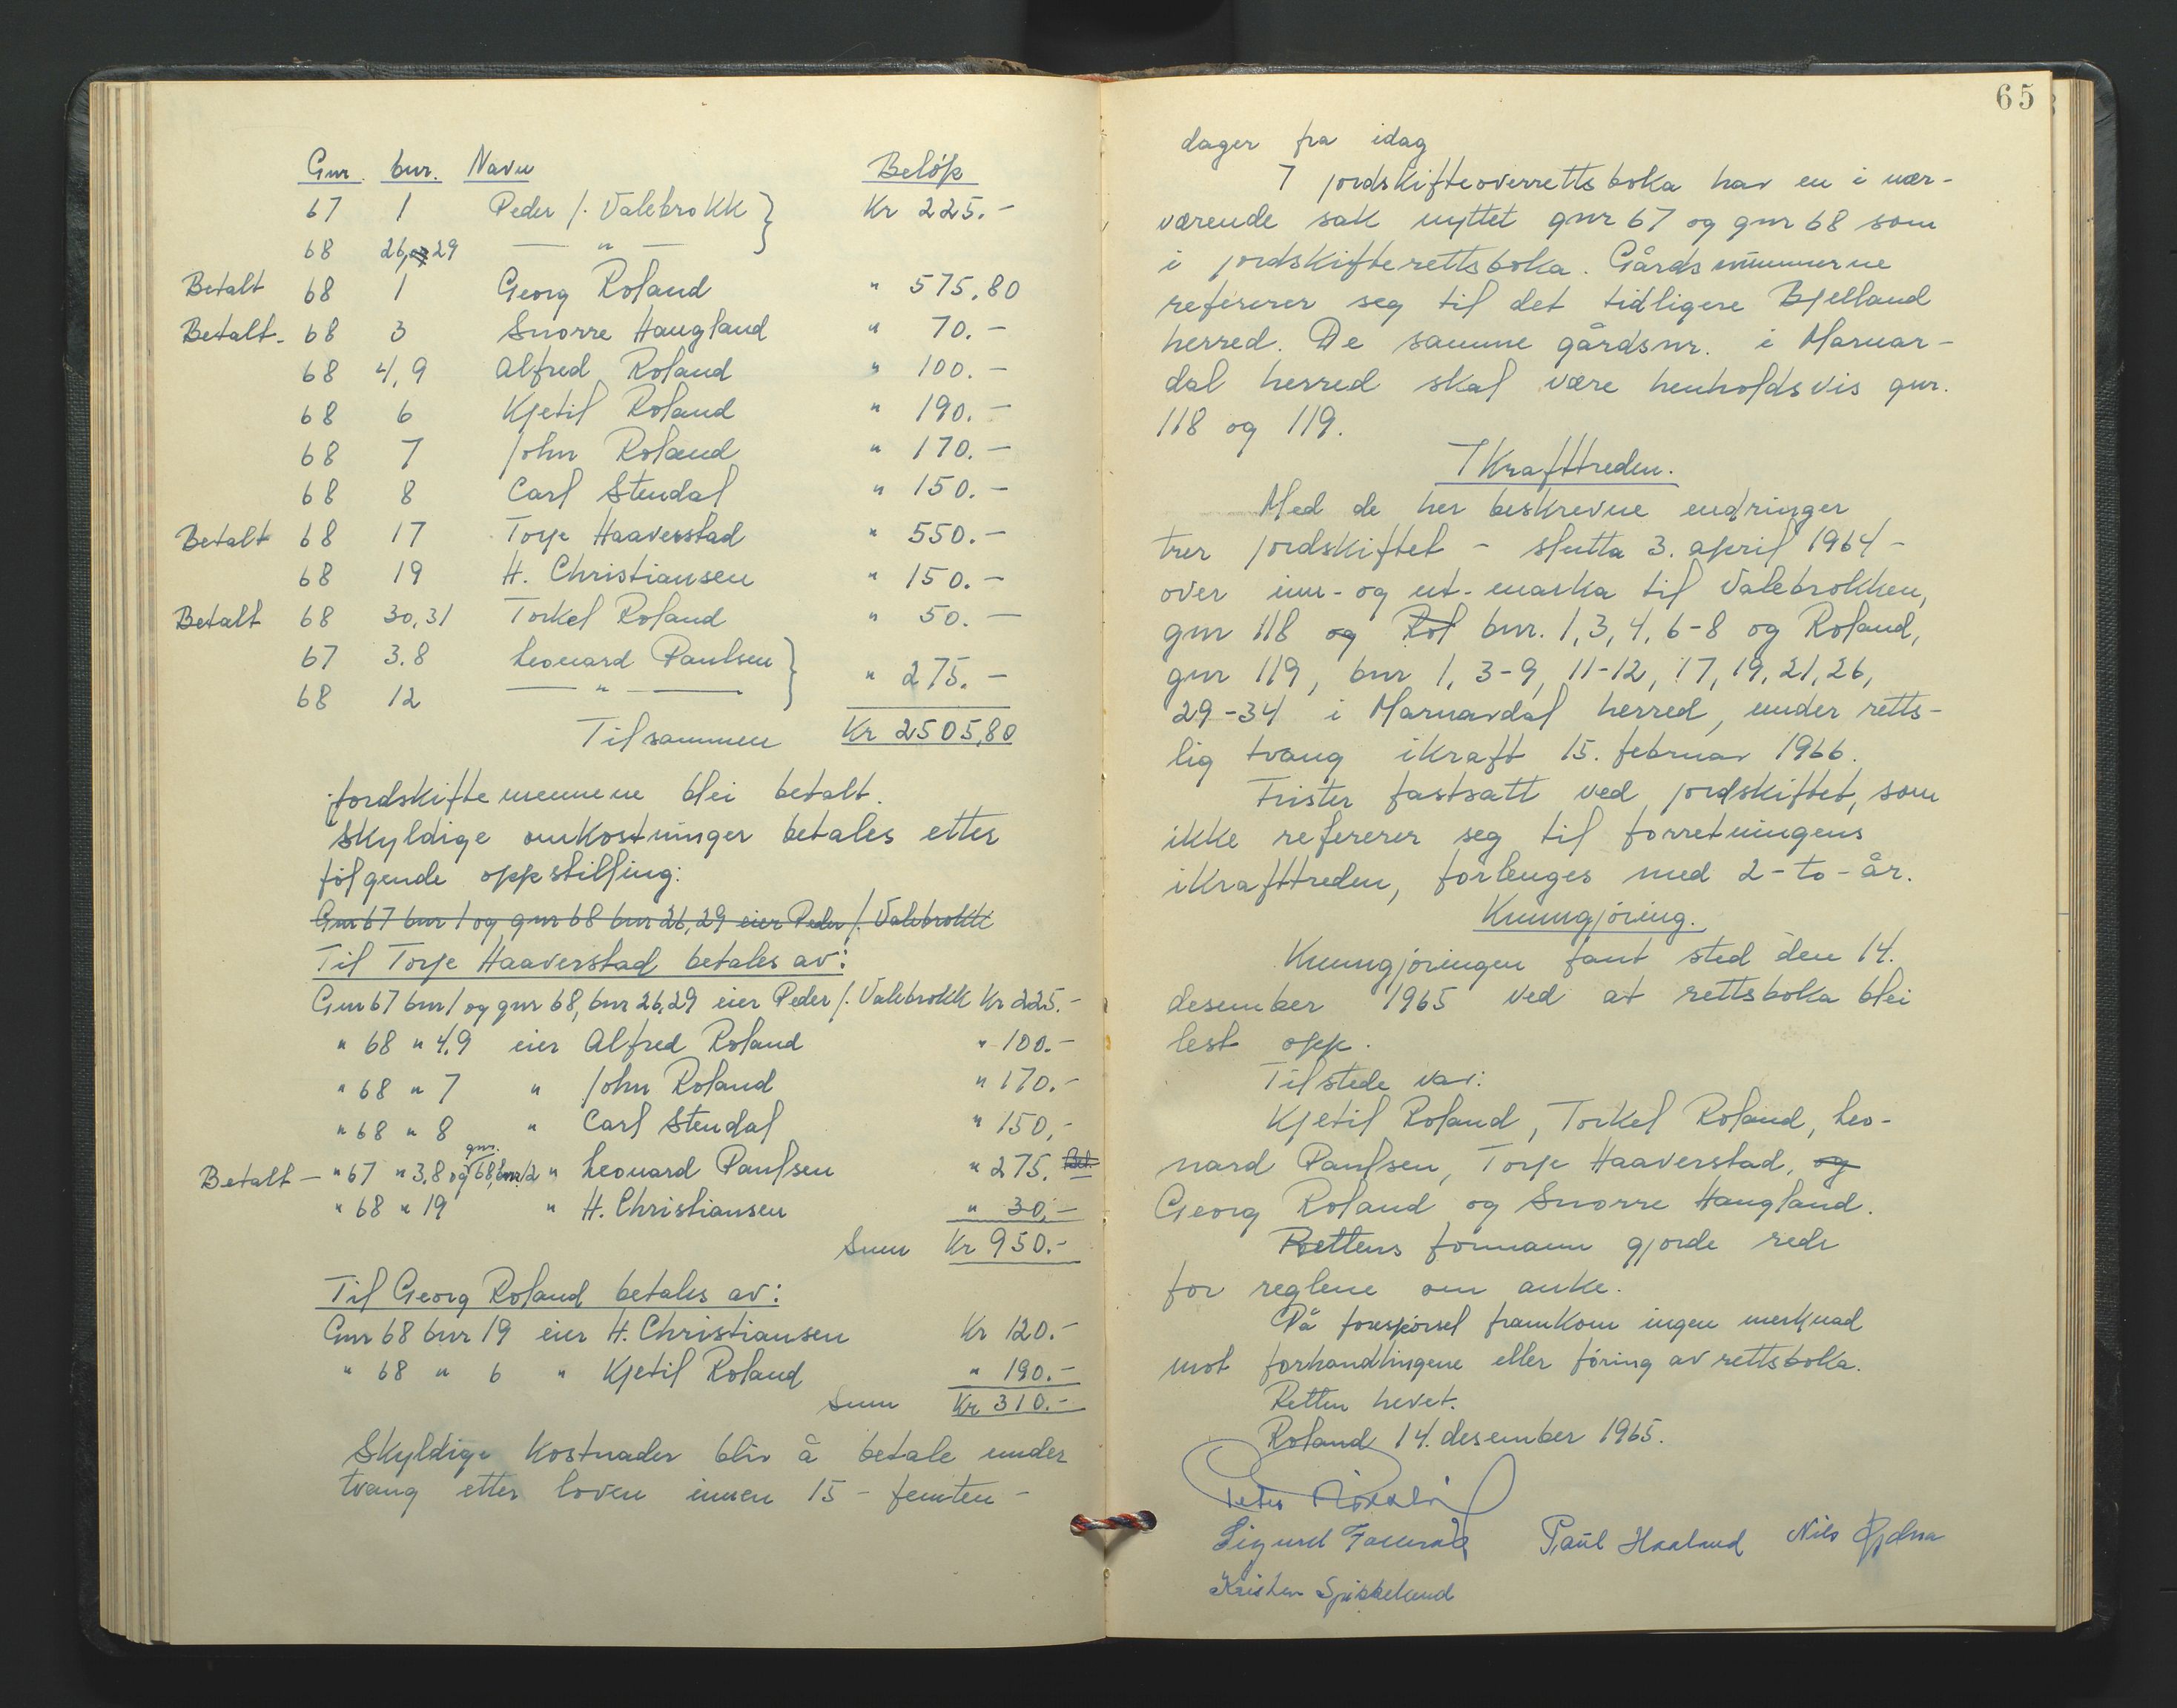 Gnr. bnr. Navn Beløp
67 1 Peder J. Valebrokk } Kr 225.-
68 26, og 29 — " — }
Betalt 68 1 Georg Roland " 575,80
Betalt - 68 3 Snorre Haugland " 70.-
68 4,9 Alfred Roland " 100.-
68 6 Kjetil Roland " 190.-
68 7 John Roland " 170.-
68 8 Carl Stendal " 150.-
Betalt 68 17 Torje Haaverstad " 550.-
68 19 H. Christiansen " 150.-
Betalt 68 30,31 Torkel Roland " 50.-
67 3.8 Leonard Paulsen } " 275.-
68 12 — " — }
Tilsammen Kr 2505,80
Jordskiftemennene blei betalt.
Skyldige omkostninger betales etter
følgende oppstilling:
Gnr 67 bnr 1 og gnr 68 bnr 26, 29 eier Peder J. Valebrokk
Til Torje Haaverstad betales av:
Gnr 67 bnr 1 og gnr 68, bnr 26,29 eier Peder J. Valebrokk Kr 225.-
" 68 " 4,9 eier Alfred Roland " 100.-
" 68 " 7 " John Roland " 170.-
" 68 " 8 " Carl Stendal " 150,-
Betalt — " 67 " 3,8 og gnr. 68, bnr. 12 " Leonard Paulsen " 275. Bet.
" 68 " 19 " H. Christiansen " 30,-
Sum Kr 950.-
Til Georg Roland betales av:
Gnr 68 bnr 19 eier H. Christiansen Kr 120.-
" 68 " 6 " Kjetil Roland " 190.-
Sum Kr 310.-
Skyldige kostnader blir å betale under
tvang etter loven innen 15 - femten -
65
dager fra idag
I jordskifteoverrettsboka har en i nær-
værende sak nyttet gnr 67 og gnr 68 som
i jordskifterettsboka. Gårdsnummerne
refererer seg til det tidligere Bjelland
herred. De samme gårdsnr. i Marnar-
dal herred skal være henholdsvis gnr.
118 og 119.
Ikrafttreden.
Med de her beskrevne endringer
trer jordskiftet - slutta 3. april 1964 -
over inn- og ut-marka til Valebrokken,
gnr 118 og Rol bnr. 1, 3, 4, 6-8 og Roland,
gnr 119, bnr 1, 3-9, 11-12, 17, 19, 21, 26,
29-34 i Marnardal herred, under retts-
lig tvang ikraft 15. februar 1966.
Frister fastsatt ved jordskiftet, som
ikke refererer seg til forretningens
ikrafttreden, forlenges med 2-to-år.
Kunngjøring.
Kunngjøringen fant sted den 14.
desember 1965 ved at rettsboka blei
lest opp.
Tilstede var:
Kjetil Roland, Torkel Roland, Leo-
nard Paulsen, Torje Haaverstad, og
Georg Roland og Snorre Haugland.
Rettens formann gjorde rede
for reglene om anke.
På forespørsel framkom ingen merknad
mot forhandlingene eller føring av rettsboka.
Retten hevet.
Roland 14. desember 1965.
Peter
Sigurd Paul Haaland Nils
Kristen Spikkeland